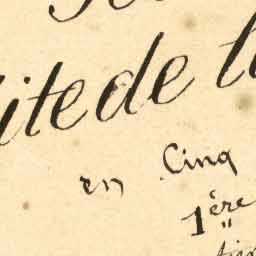 itedel
en Cinq
1ère